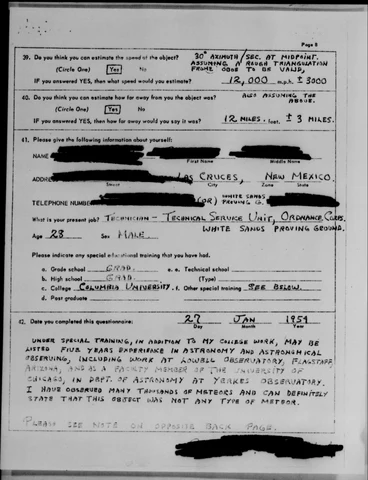 Page 8
39. Do you think you can estimate the speed of the object?
30° AZIMUTH/SEC. AT MIDPOINT.
ASSUMING A ROUGH TRIANGULATION
FROM ODOE TO BE VALID,
(Circle One) Yes No
IF you answered YES, then what speed would you estimate? 12,000 m.p.h. ± 3000
40. Do you think you can estimate how far away from you the object was?
ALSO ASSUMING THE
ABOVE.
(Circle One) Yes No
IF you answered YES, then how far away would you say it was? 12 MILES. feet. ± 3 MILES.
41. Please give the following information about yourself:
NAME
First Name Middle Name
ADDRESS LAS CRUCES, NEW MEXICO.
Street City Zone State
TELEPHONE NUMBER (OR) WHITE SANDS
PROVING G.
What is your present job? TECHNICIAN - TECHNICAL SERVICE UNIT, ORDNANCE CORPS.
WHITE SANDS PROVING GROUND.
Age 28 Sex MALE
Please indicate any special educational training that you have had.
a. Grade school GRAD. e. Technical school
b. High school GRAD. (Type)
c. College COLUMBIA UNIVERSITY. f. Other special training SEE BELOW.
d. Post graduate
42. Date you completed this questionnaire: 27 JAN 1954
Day Month Year
UNDER SPECIAL TRAINING, IN ADDITION TO MY COLLEGE WORK, MAY BE
LISTED FIVE YEARS EXPERIENCE IN ASTRONOMY AND ASTRONOMICAL
OBSERVING, INCLUDING WORK AT LOWELL OBSERVATORY, FLAGSTAFF
ARIZONA, AND AS A FACULTY MEMBER OF THE UNIVERSITY OF
CHICAGO, IN DEPT. OF ASTRONOMY AT YERKES OBSERVATORY.
I HAVE OBSERVED MANY THOUSANDS OF METEORS AND CAN DEFINITELY
STATE THAT THIS OBJECT WAS NOT ANY TYPE OF METEOR.
PLEASE SEE NOTE ON OPPOSITE BACK PAGE.